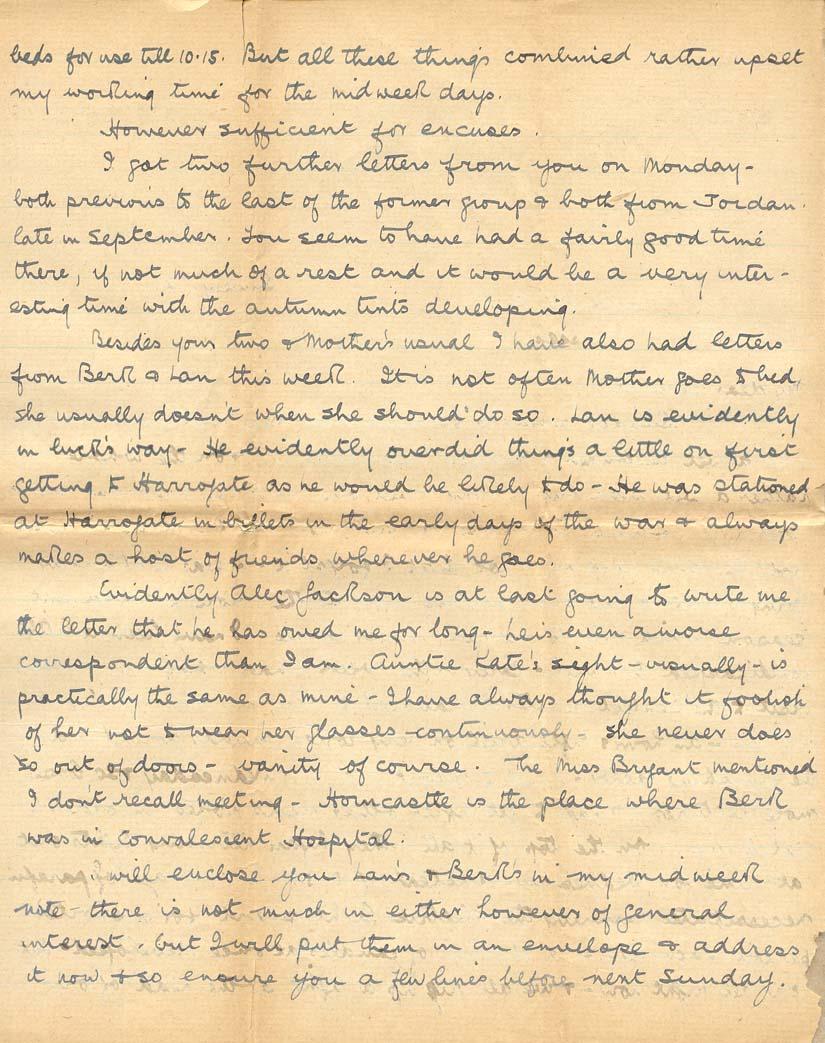 beds for use till 10.15. But all these things combined rather upset
my working time for the midweek days.
However sufficient for excuses.
I got two further letters from you on Monday -
both previous to the last of the former group & both from Jordan.
late in September. You seem to have had a fairly good time
there, if not much of a rest and it would be a very inter-
esting time with the autumn tints developing.
Besides your two & Mother's usual I have also had letters
from Berk & Lan this week. It is not often Mother goes to bed,
she usually doesn't when she should do so. Lan is evidently
in luck's way - He evidently overdid things a little on first
getting to Harrogate as he would be likely to do - He was stationed
at Harrogate in billets in the early days of the war & always
makes a host of friends wherever he goes.
Evidently Alec Jackson is at last going to write me
the letter that he has owed me for long - he is even a worse
correspondent than I am. Auntie Kate's sight - visually - is
practically the same as mine - I have always thought it foolish
of her not to wear her glasses continuously - she never does
so out of doors - vanity of course. The Miss Bryant mentioned
I don't recall meeting - Horncastle is the place where Berk
was in Convalescent Hospital.
I will enclose you Lan's & Berk's in my midweek
note - there is not much in either however of general
interest. but I will put them in an envelope & address
it now & so ensure you a few lines before next Sunday.